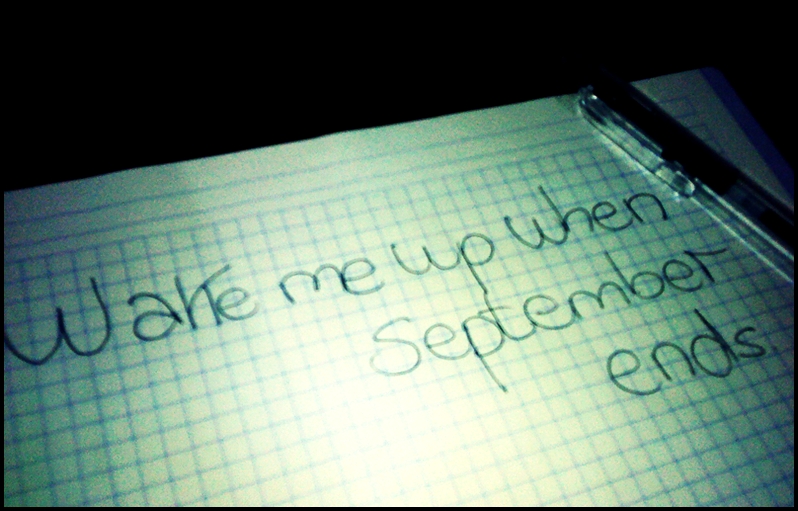 Wake me up when
September
ends.